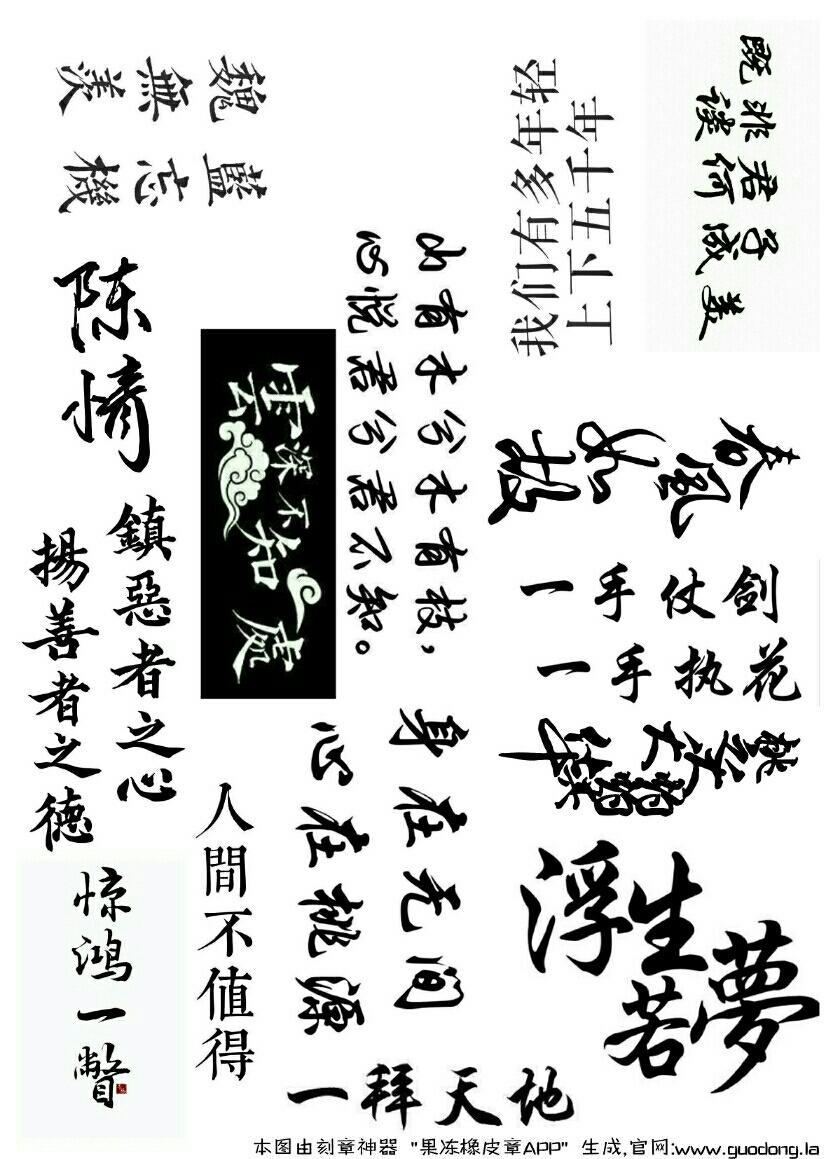 魏無羨
藍忘機
我们有多年轻
上下五千年
既非君子
谈何成美
陈情
雲深不知處
山有木兮木有枝，
心悦君兮君不知。
春風如
鎮惡者之心
揚善者之德
一手仗剑
一手执花
身在无间
心在桃源
人間不值得
惊鸿一瞥
浮生若夢
一拜天地
本图由刻章神器 "果冻橡皮章APP" 生成,官网:www.guodong.la